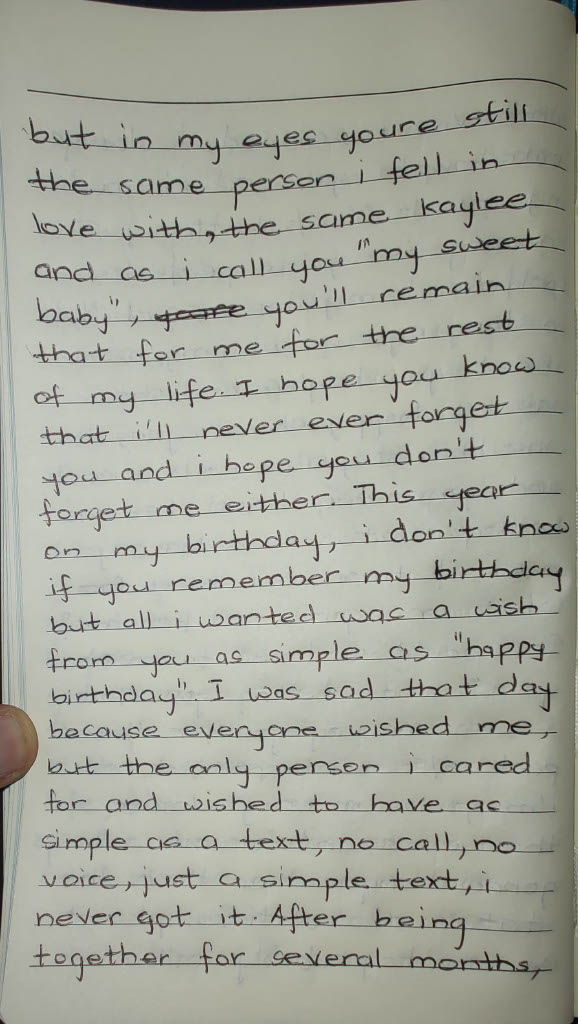 but in my eyes youre still
the same person i fell in
love with, the same kaylee
and as i call you "my sweet
baby", you'll remain
that for me for the rest
of my life. I hope you know
that i'll never ever forget
you and i hope you don't
forget me either. This year
on my birthday, i don't know
if you remember my birthday
but all i wanted was a wish
from you as simple as "happy
birthday". I was sad that day
because everyone wished me,
but the only person i cared
for and wished to have as
simple as a text, no call, no
voice, just a simple text, i
never got it. After being
together for several months,